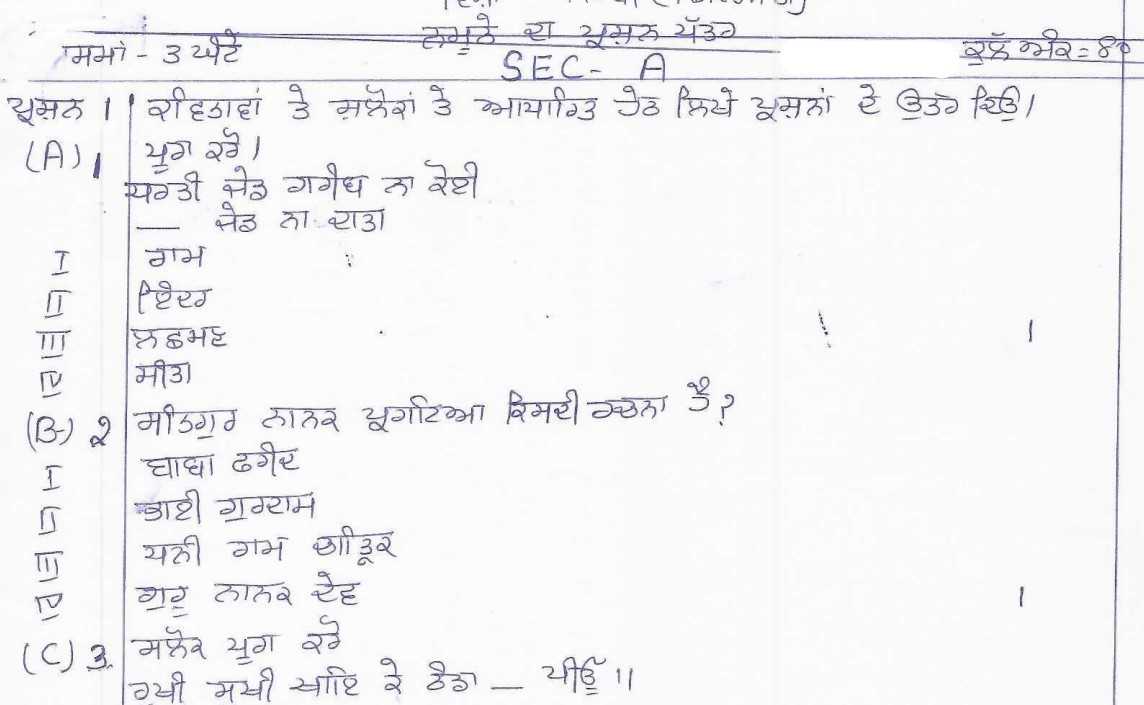 ਨਮੂਨੇ ਦਾ ਪ੍ਰਸ਼ਨ ਪੱਤਰ
ਸਮਾਂ - 3 ਘੰਟੇ ਕੁਲੱ ਅੰਕ = 80
SEC - A
ਪ੍ਰਸ਼ਨ 1 ਕਵਿਤਾਵਾਂ ਤੇ ਸ਼ਲੋਕਾਂ ਤੇ ਆਧਾਰਿਤ ਹੇਠ ਲਿਖੇ ਪ੍ਰਸ਼ਨਾਂ ਦੇ ਉਤਰ ਦਿਓ।
(A) 1 ਪੂਰਾ ਕਰੋ।
ਧਰਤੀ ਜੇਡ ਗਰੀਬ ਨਾ ਕੋਈ
— ਜੇਡ ਨਾ ਦਾਤਾ
I ਰਾਮ
II ਇੰਦਰ
III ਲਛਮਣ 1
IV ਸੀਤਾ
(B) 2 ਸਤਿਗੁਰ ਨਾਨਕ ਪ੍ਰਗਟਿਆ ਕਿਸਦੀ ਰਚਨਾ ਹੈ?
I ਬਾਬਾ ਫਰੀਦ
II ਭਾਈ ਗੁਰਦਾਸ
III ਧਨੀ ਰਾਮ ਚਾਤ੍ਰਿਕ
IV ਗੁਰੂ ਨਾਨਕ ਦੇਵ 1
(C) 3. ਸਲੋਕ ਪੂਰਾ ਕਰੋ
ਰੁਖੀ ਸੁਖੀ ਖਾਇ ਕੇ ਠੰਡਾ — ਪੀਉ ॥